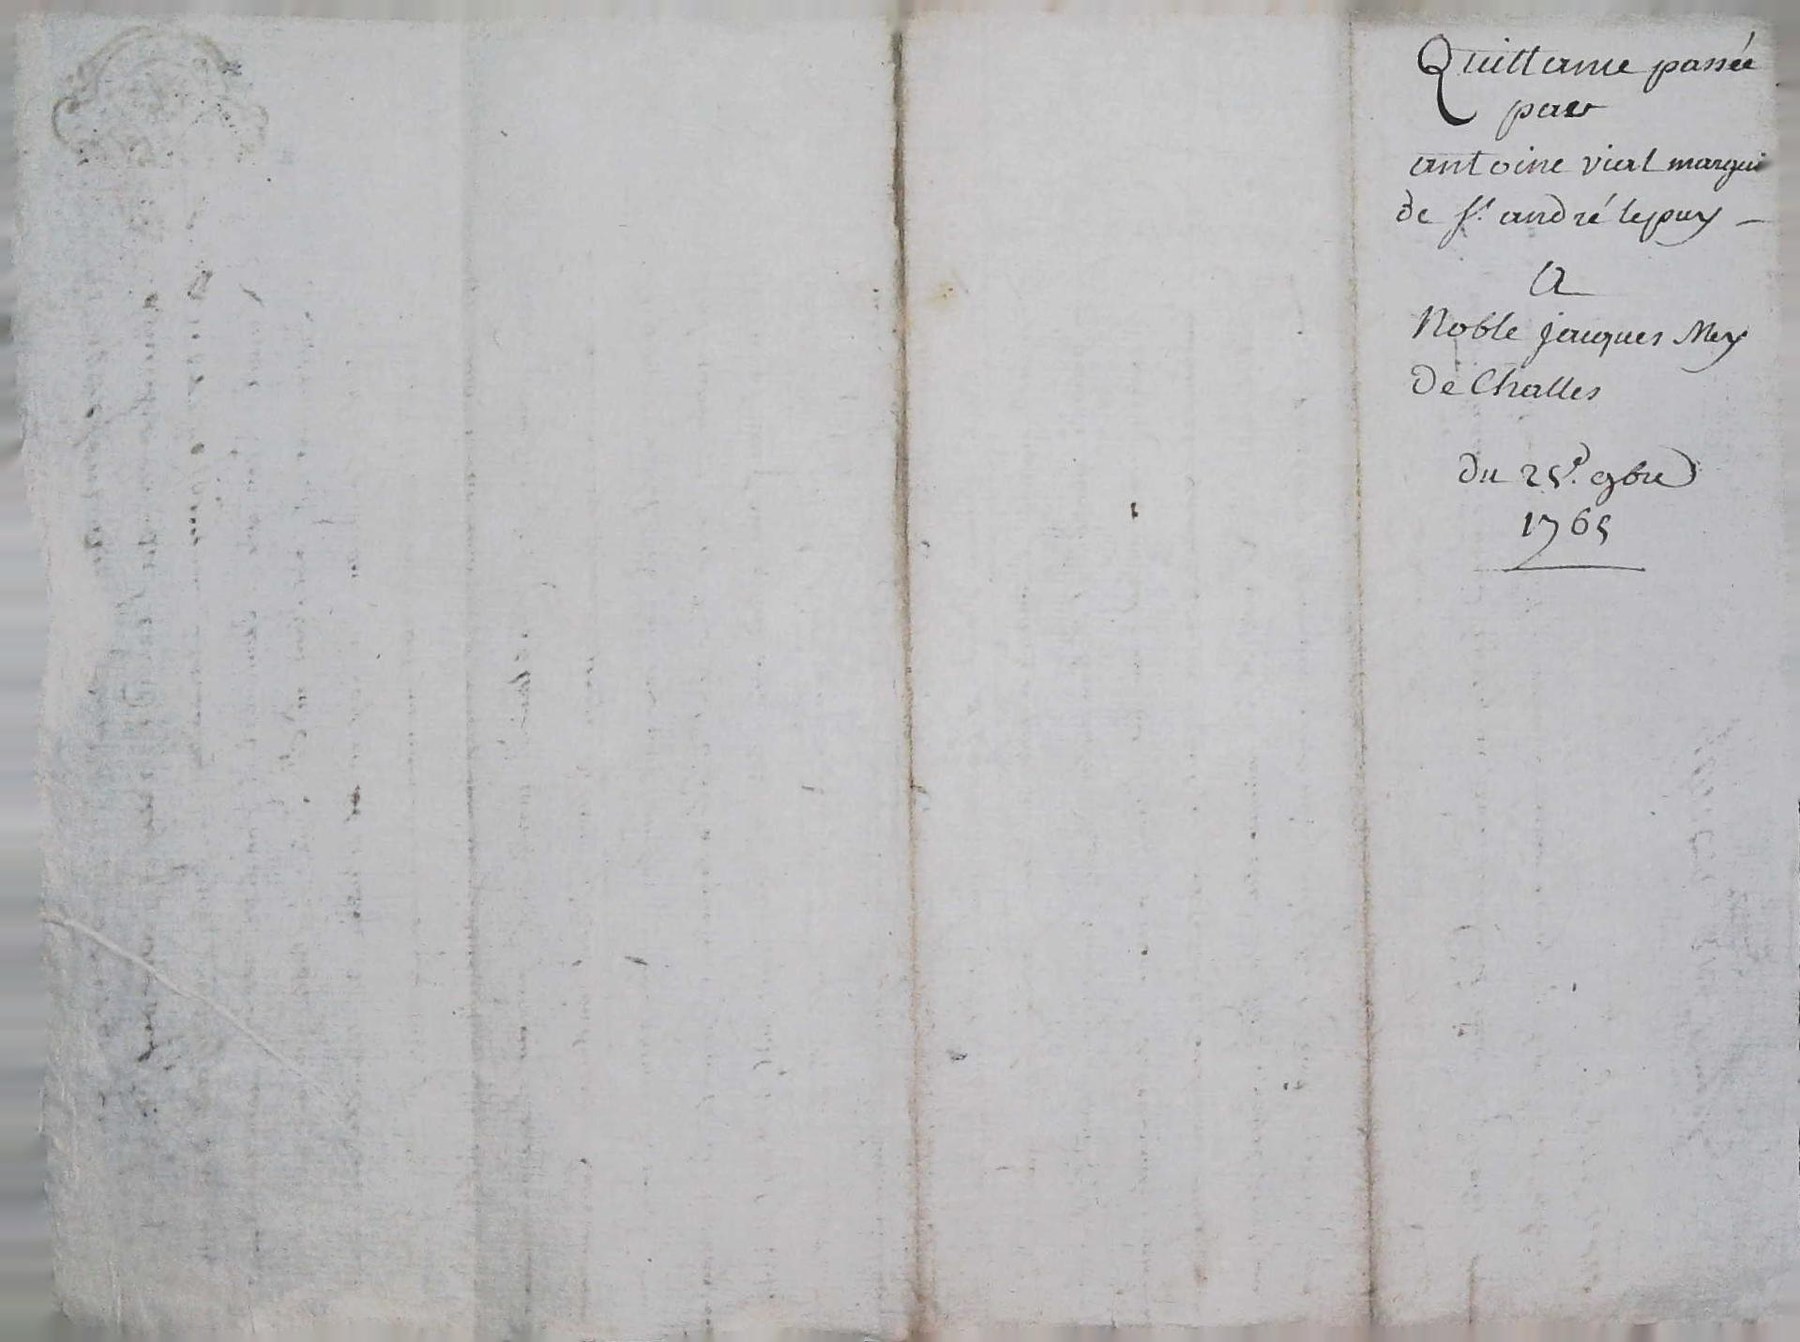 Quittance passée
par
antoine vial margui
de St. andré lepuy —
A
Noble jacques Mey
De Challes
du 25e. 9bre
1765